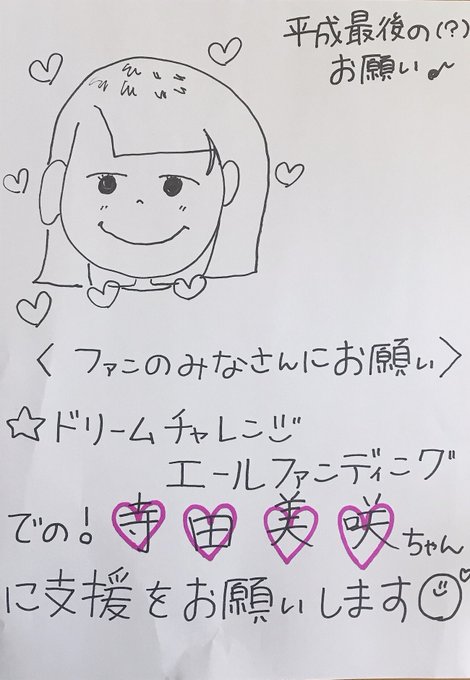 平成最後の(?)
お願い♪
〈ファンのみなさんにお願い〉
☆ドリームチャレンジ
エールファンディング
での!寺田美咲ちゃん
に支援をお願いします